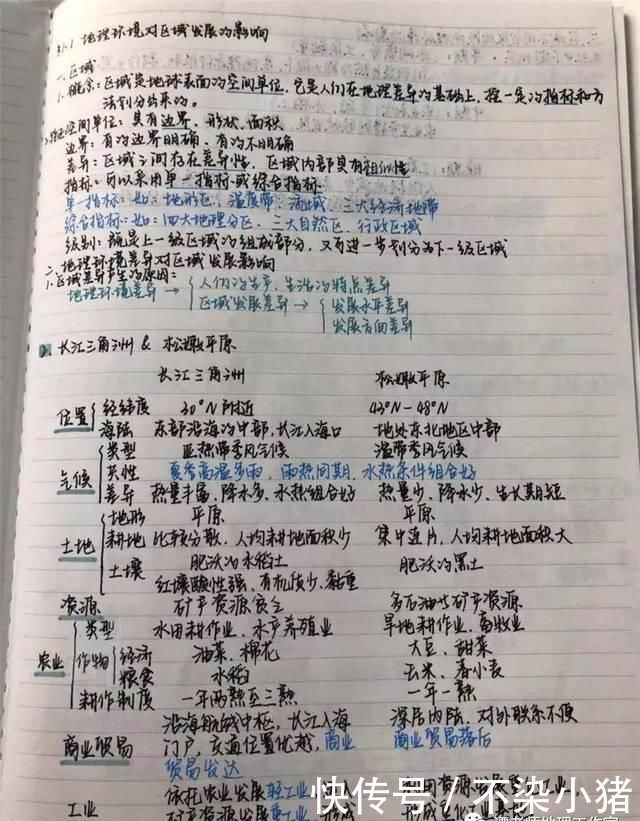 §1.1 地理环境对区域发展的影响
一、区域
1. 概念：区域是地球表面的空间单位，它是人们在地理差异的基础上，按一定的指标和方
法划分出来的。
空间单位：具有边界、形状、面积
边界：有的边界明确、有的不明确
差异：区域之间存在差异性，区域内部具有相似性
指标：可以采用单一指标或综合指标
单一指标：如：地形区、温度带、流域、三大经济地带
综合指标：如：四大地理分区、三大自然区、行政区域
级别：既是上一级区域的组成部分，又可进一步划分为下一级区域
二、地理环境差异对区域发展影响
1. 区域差异产生的原因：
地理环境差异 → 人们的生产、生活的特点差异
区域发展差异 → 发展水平差异
发展方向差异
2. 长江三角洲 & 松嫩平原
长江三角洲 松嫩平原
位置 经纬度 30°N附近 43°N-48°N
海陆 东部沿海的中部，长江入海口 地处东北地区中部
气候 类型 亚热带季风气候 温带季风气候
共性 夏季高温多雨，雨热同期，水热条件组合好
差异 热量丰富、降水多、水热组合好 热量少、降水少、生长期短
土地 地形 平原 平原
耕地 比较分散，人均耕地面积少 集中连片，人均耕地面积大
土壤 肥沃的水稻土 肥沃的黑土
红壤酸性强、有机质少、黏重
资源 矿产资源贫乏 多石油等矿产资源
农业 类型 水田耕作业，水产养殖业 旱地耕作业，畜牧业
作物 经济 油菜、棉花 大豆、甜菜
粮食 水稻 玉米、春小麦
耕作制度 一年两熟至三熟 一年一熟
沿海航线中枢，长江入海 深居内陆，对外联系不便
商业贸易 门户，交通位置优越，商业 商业贸易落后
贸易发达
工业 依托农业发展轻工业
快传号 / 不染小猪